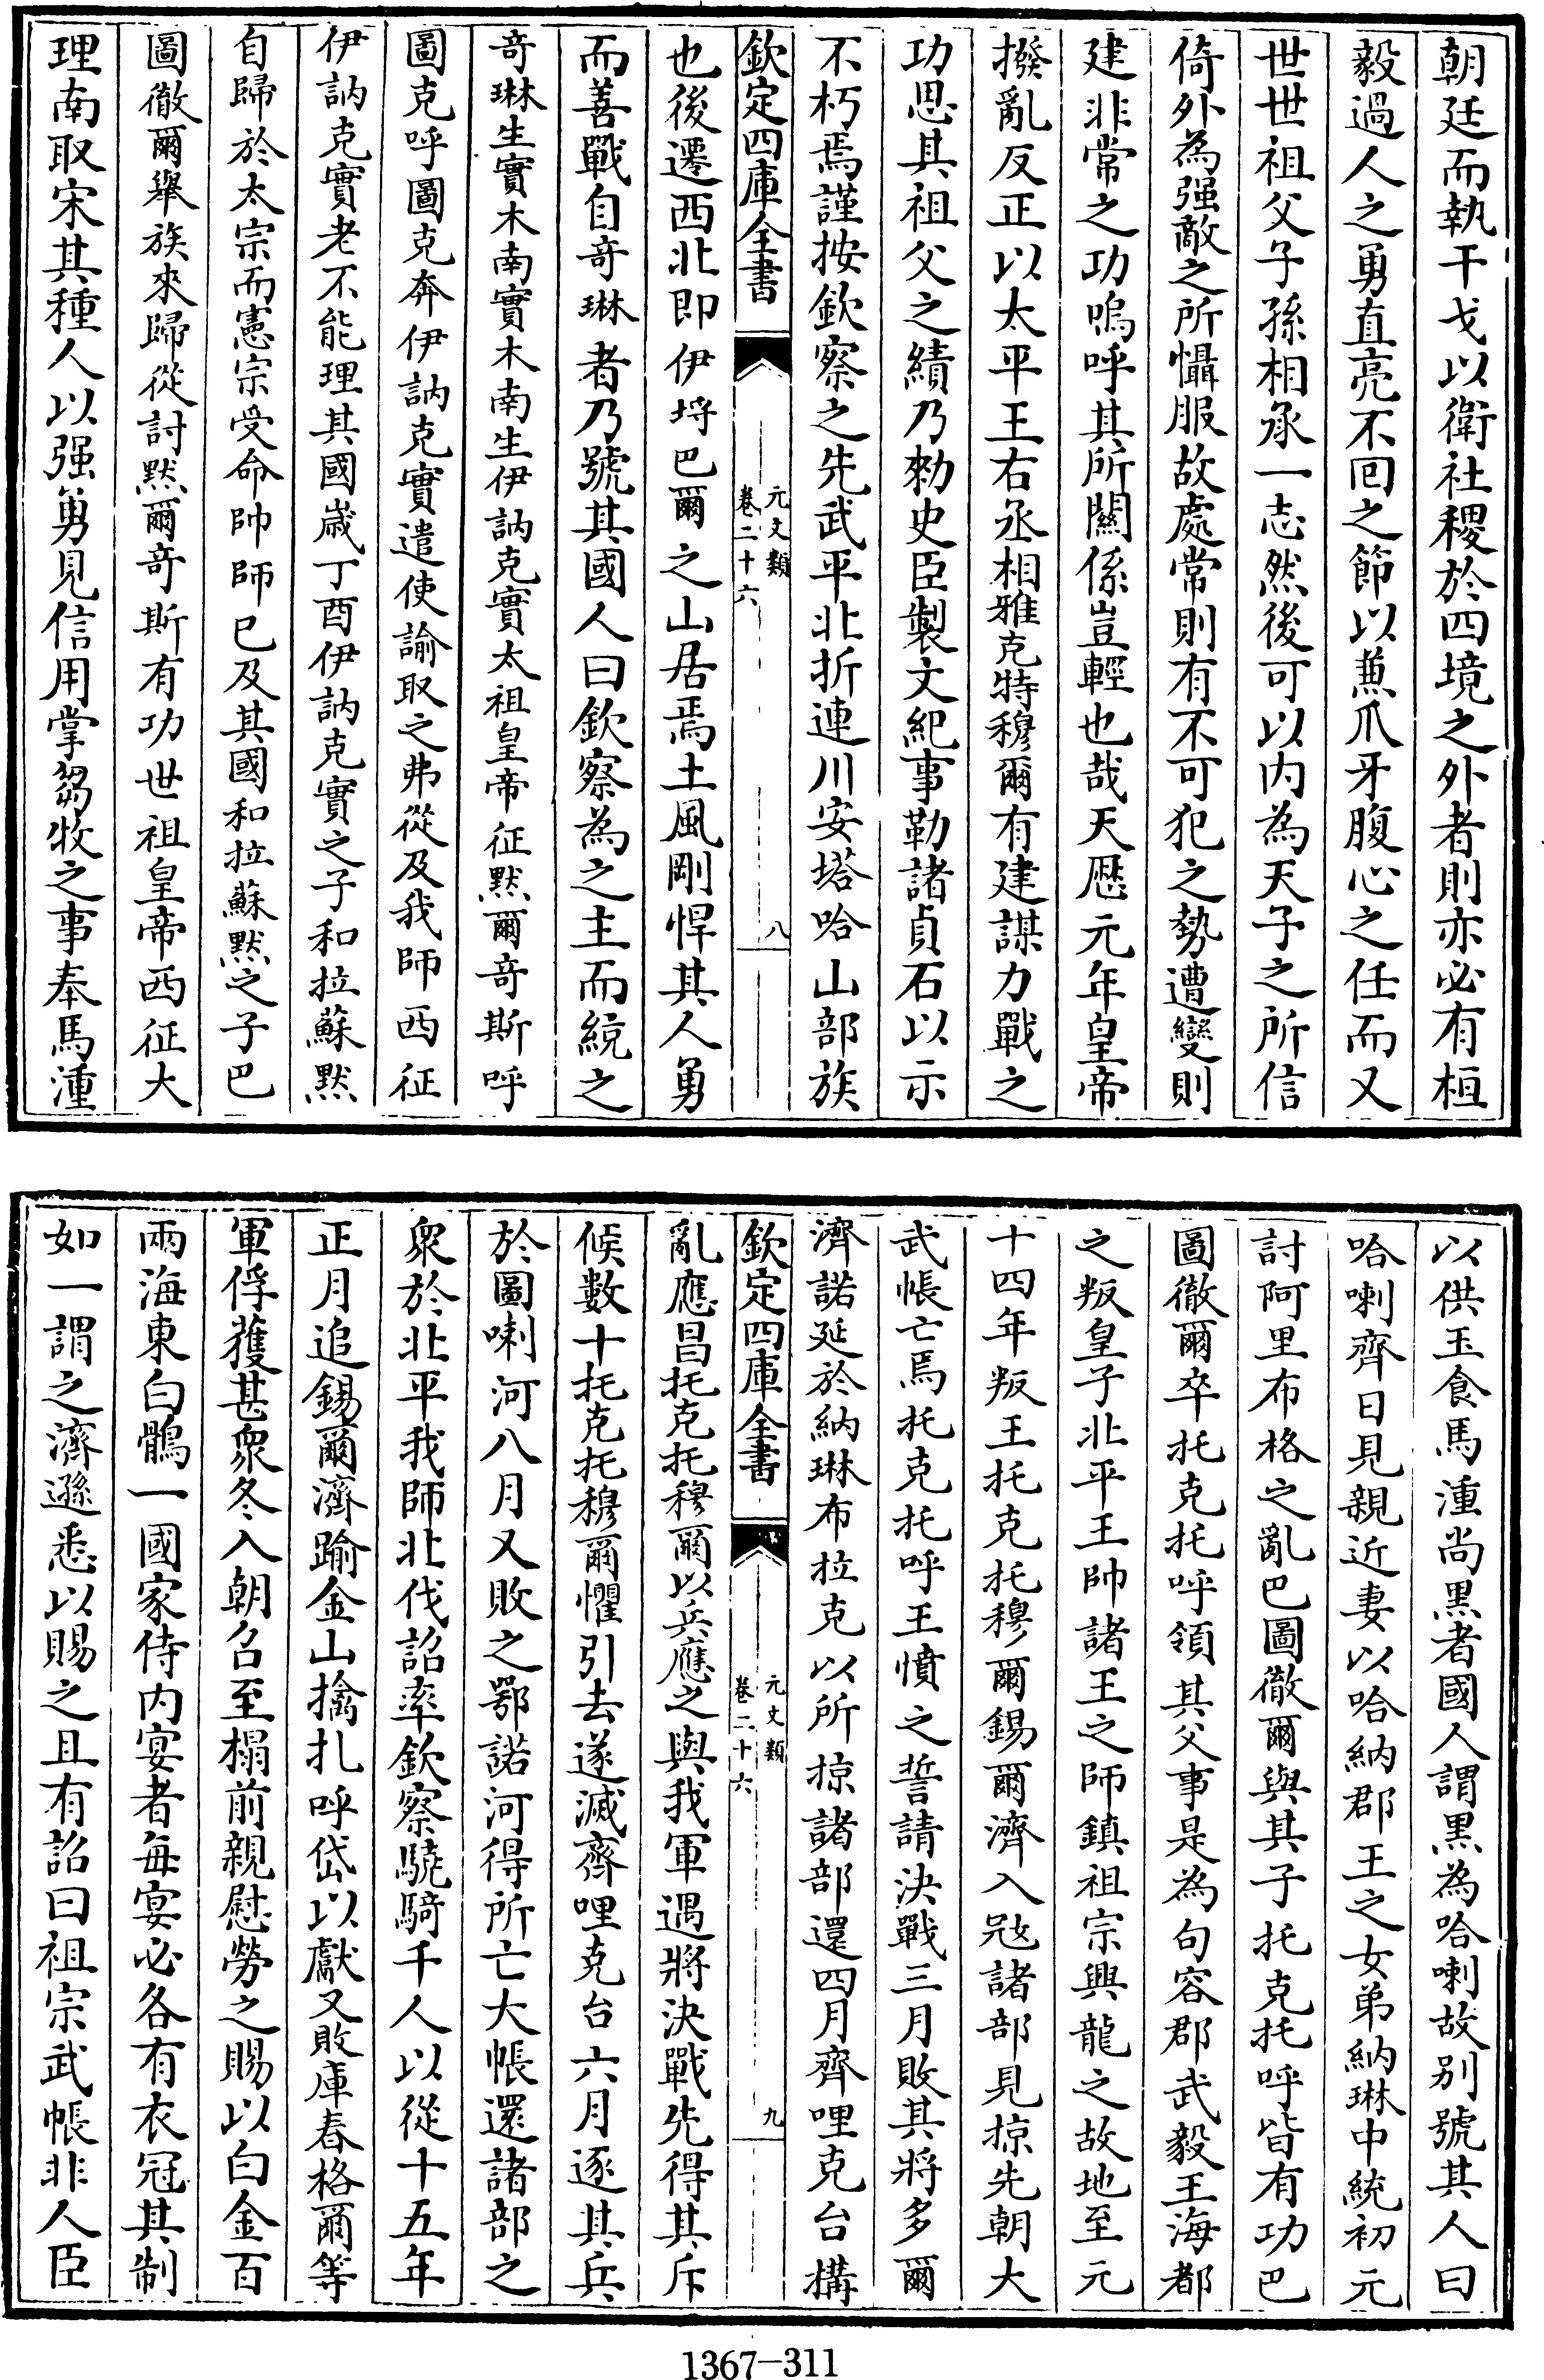 朝廷而執干戈以衛社稷於四境之外者則亦必有桓
毅過人之勇直亮不回之節以兼爪牙腹心之任而又
世世祖父子孫相承一志然後可以内為天子之所信
倚外為强敵之所懾服故處常則有不可犯之勢遭變則
建非常之功嗚呼其所關係豈輕也哉天厯元年皇帝
撥亂反正以太平王右丞相雅克特穆爾有建謀力戰之
功思其祖父之績乃勑史臣製文紀事勒諸貞石以示
不朽焉謹按欽察之先武平北折連川安塔哈山部族
欽定四庫全書
元文類
卷二十六
八
也後遷西北即伊埓巴爾之山居焉土風剛悍其人勇
而善戰自竒琳者乃號其國人曰欽察為之主而統之
竒琳生實木南實木南生伊訥克實太祖皇帝征黙爾竒斯呼
圖克呼圖克奔伊訥克實遣使諭取之弗從及我師西征
伊訥克實老不能理其國嵗丁酉伊訥克實之子和拉蘇黙
自歸於太宗而憲宗受命帥師已及其國和拉蘇黙之子巴
圖徹爾舉族來歸從討黙爾竒斯有功世祖皇帝西征大
理南取宋其種人以强勇見信用掌芻牧之事奉馬湩
以供玉食馬湩尚黒者國人謂黒為哈喇故别號其人曰
哈喇齊日見親近妻以哈納郡王之女弟納琳中統初元
討阿里布格之亂巴圖徹爾與其子托克托呼皆有功巴
圖徹爾卒托克托呼領其父事是為句容郡武毅王海都
之叛皇子北平王帥諸王之師鎮祖宗興龍之故地至元
十四年叛王托克托穆爾錫爾濟入寇諸部見掠先朝大
武帳亡焉托克托呼王憤之誓請決戰三月敗其將多爾
濟諾延於納琳布拉克以所掠諸部還四月齊哩克台搆
欽定四庫全書
元文類
卷二十六
九
亂應昌托克托穆爾以兵應之與我軍遇將決戰先得其斥
候數十托克托穆爾懼引去遂滅齊哩克台六月逐其兵
於圖喇河八月又敗之鄂諾河得所亡大帳還諸部之
衆於北平我師北伐詔率欽察驍騎千人以從十五年
正月追錫爾濟踰金山擒扎呼岱以獻又敗庫春格爾等
軍俘獲甚衆冬入朝召至榻前親慰勞之賜以白金百
兩海東白鶻一國家侍内宴者每宴必各有衣冠其制
如一謂之濟遜悉以賜之且有詔曰祖宗武帳非人臣
1367-311